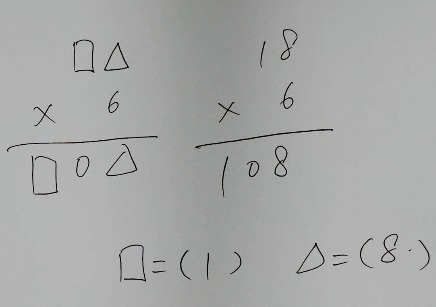 □△ 18
× 6 × 6
□0△ 108
□=(1) △=(8.)